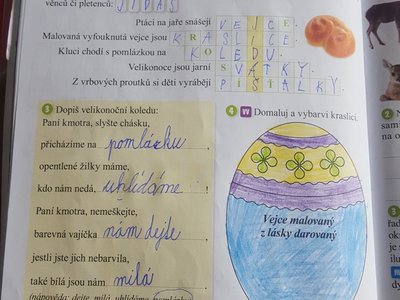 věnců či pletenců: JIDÁŠ
Ptáci na jaře snášejí VEJCE.
Malovaná vyfouknutá vejce jsou KRASLICE.
Kluci chodí s pomlázkou na KOLEDU.
Velikonoce jsou jarní SVÁTKY.
Z vrbových proutků si děti vyrábějí PÍŠŤALKY.
3 Dopiš velikonoční koledu:
Paní kmotra, slyšte chásku,
přicházíme na pomlázku,
opentlené žilky máme,
kdo nám nedá, uhlídáme!
Paní kmotra, nemeškejte,
barevná vajíčka nám dejte,
jestli jste jich nebarvila,
také bílá jsou nám milá.
(nápověda: dejte, milá, uhlídáme, pomlázku)
4 W Domaluj a vybarvi kraslici.
Vejce malovaný
z lásky darovaný
2